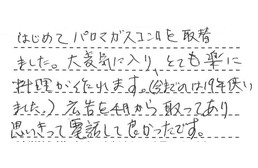 はじめてパロマガスコンロを取替
ました。大変気に入り、とても楽に
料理が作れます。(今までのは19年使い
ました。)広告を4月から取ってあり
思いきって電話して良かったです。